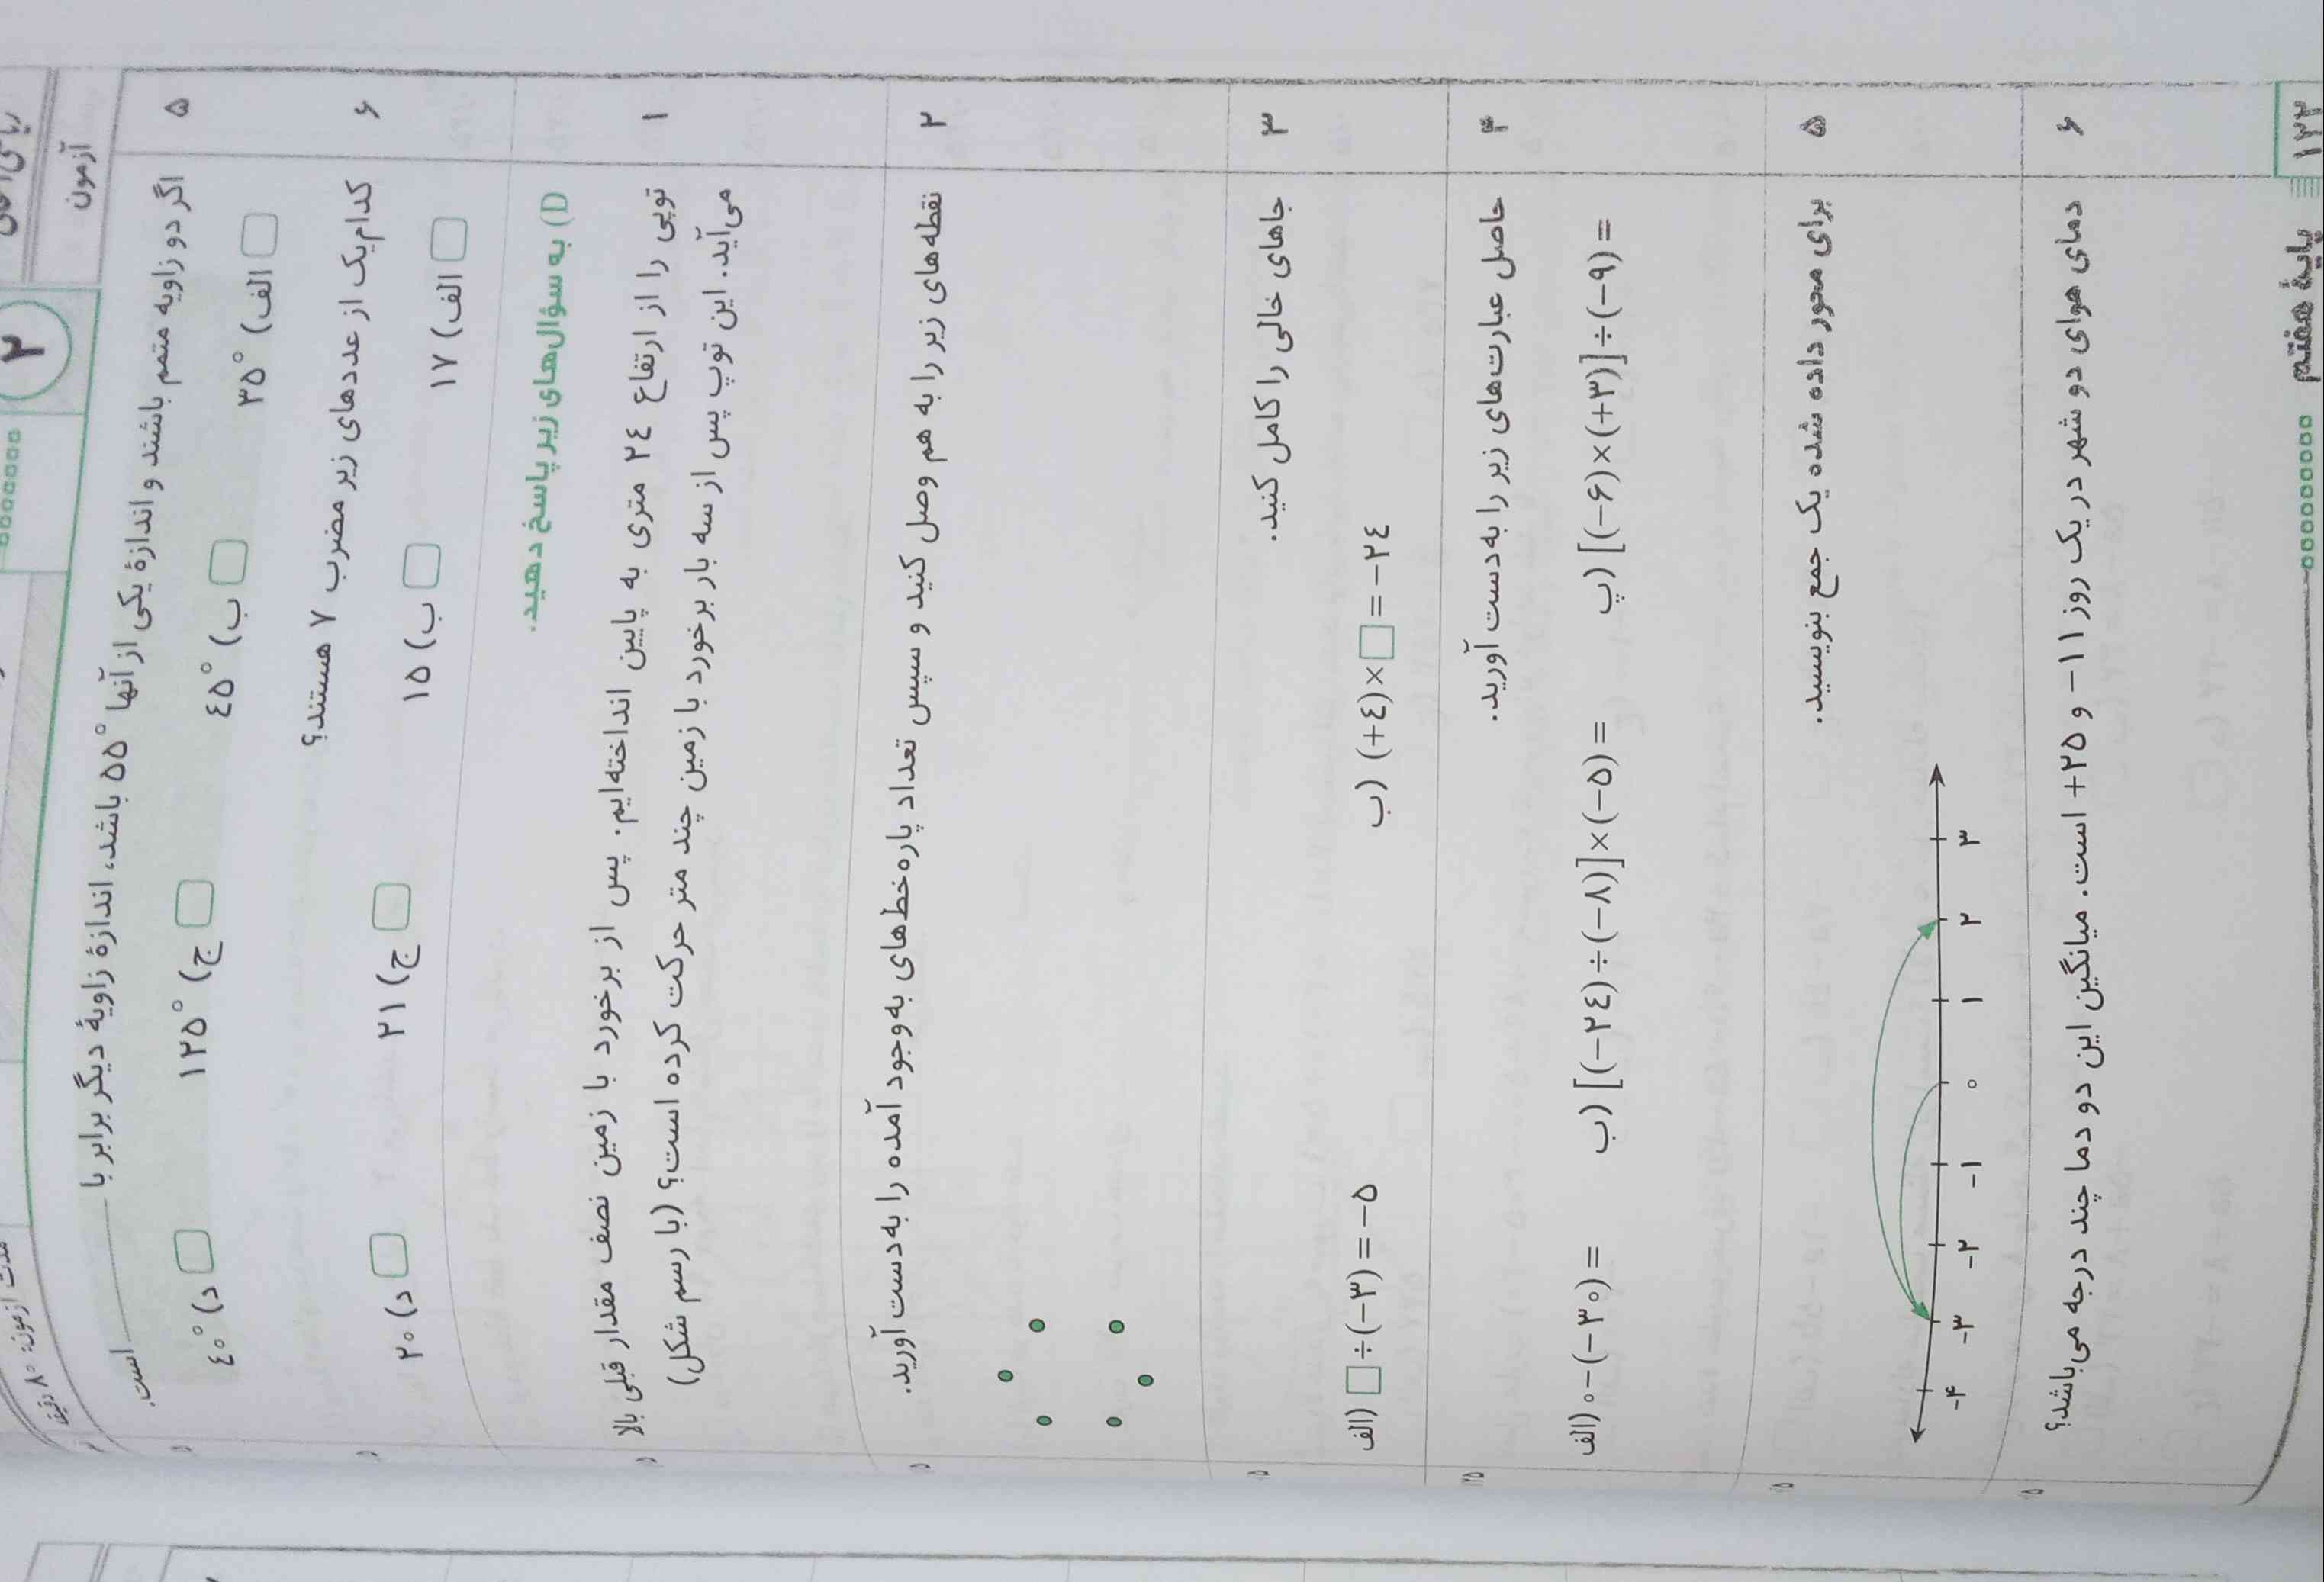 ۲
آزمون
۵ اگر دو زاویه متمم باشند و اندازهٔ یکی از آنها ۵۵° باشد، اندازهٔ زاویهٔ دیگر برابر با ______ است.
الف) ۳۵° ب) ۴۵° ج) ۱۲۵° د) ۴۰°
۶ کدام‌یک از عددهای زیر مضرب ۷ هستند؟
الف) ۱۷ ب) ۱۵ ج) ۲۱ د) ۲۰
D) به سؤال‌های زیر پاسخ دهید.
۱ توپی را از ارتفاع ۲۴ متری به پایین انداخته‌ایم. پس از برخورد با زمین نصف مقدار قبلی بالا
می‌آید. این توپ پس از سه بار برخورد با زمین چند متر حرکت کرده است؟ (با رسم شکل)
۲ نقطه‌های زیر را به هم وصل کنید و سپس تعداد پاره‌خط‌های به‌وجود آمده را به‌دست آورید.
۳ جاهای خالی را کامل کنید.
الف) □÷(−۳)=−۵ ب) (+۴)×□=−۲۴
۴ حاصل عبارت‌های زیر را به‌دست آورید.
الف) ۰−(−۳۰)= ب) [(−۲۴)÷(−۸)]×(−۵)= پ) [(−۶)×(+۳)]÷(−۹)=
۵ برای محور داده شده یک جمع بنویسید.
−۴ −۳ −۲ −۱ ۰ ۱ ۲ ۳
۶ دمای هوای دو شهر در یک روز ۱۱− و ۲۵+ است. میانگین این دو دما چند درجه می‌باشد؟
۱۲۲ پایهٔ هفتم